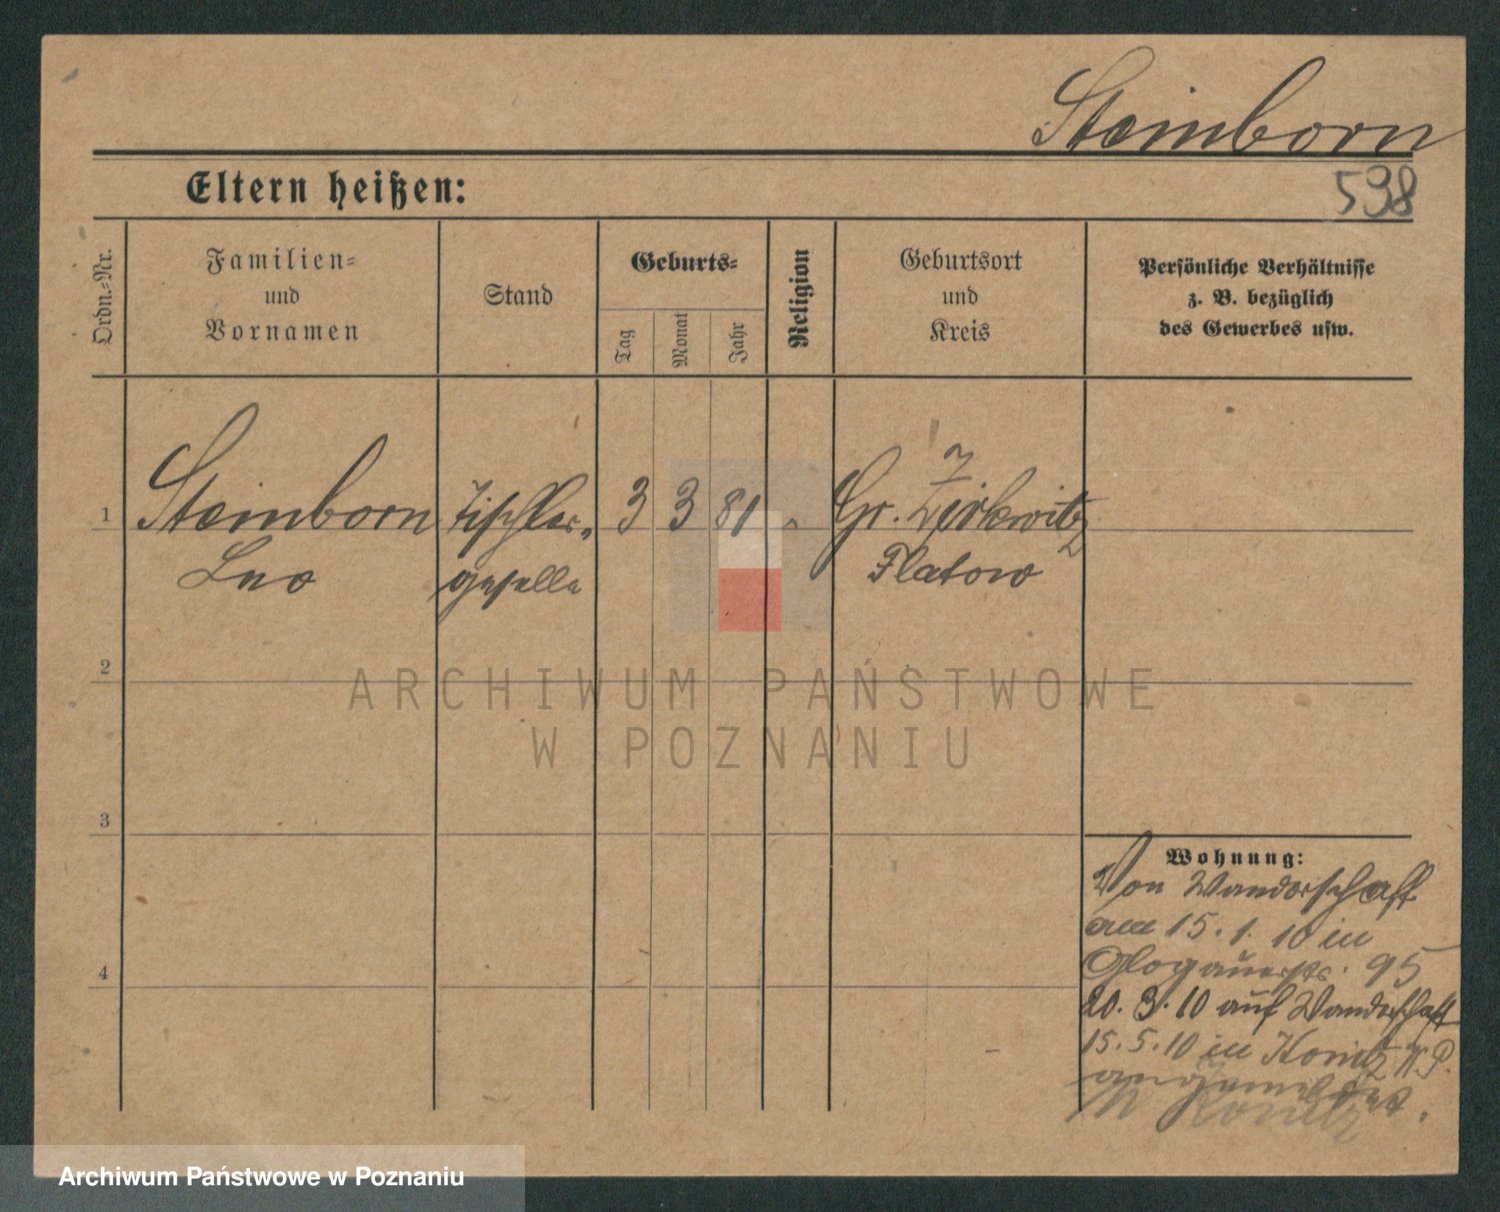 Steinborn
Eltern heißen:
598
Ordn.-Nr.
Familien-
und
Vornamen
Stand
Geburts-
Tag
Monat
Jahr
Religion
Geburtsort
und
Kreis
Persönliche Verhältnisse
z. B. bezüglich
des Gewerbes usw.
1
Steinborn
Leo
Tischler-
geselle
3 3 81
Gr. Zirkwitz
Flatow
2
3
4
Wohnung:
Von Wanderschaft
am 15.1.10 in
Glogauerstr. 95
20.3.10 auf Wanderschaft
15.5.10 in Konitz W.P.
angemeldet.
Konitz
ARCHIWUM PAŃSTWOWE
W POZNANIU
Archiwum Państwowe w Poznaniu